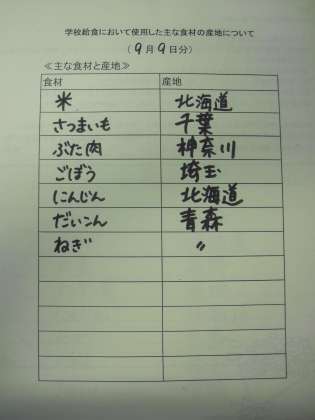 学校給食において使用した主な食材の産地について
(9月9日分)
≪主な食材と産地≫
食材 産地
米 北海道
さつまいも 千葉
ぶた肉 神奈川
ごぼう 埼玉
にんじん 北海道
だいこん 青森
ねぎ 〃